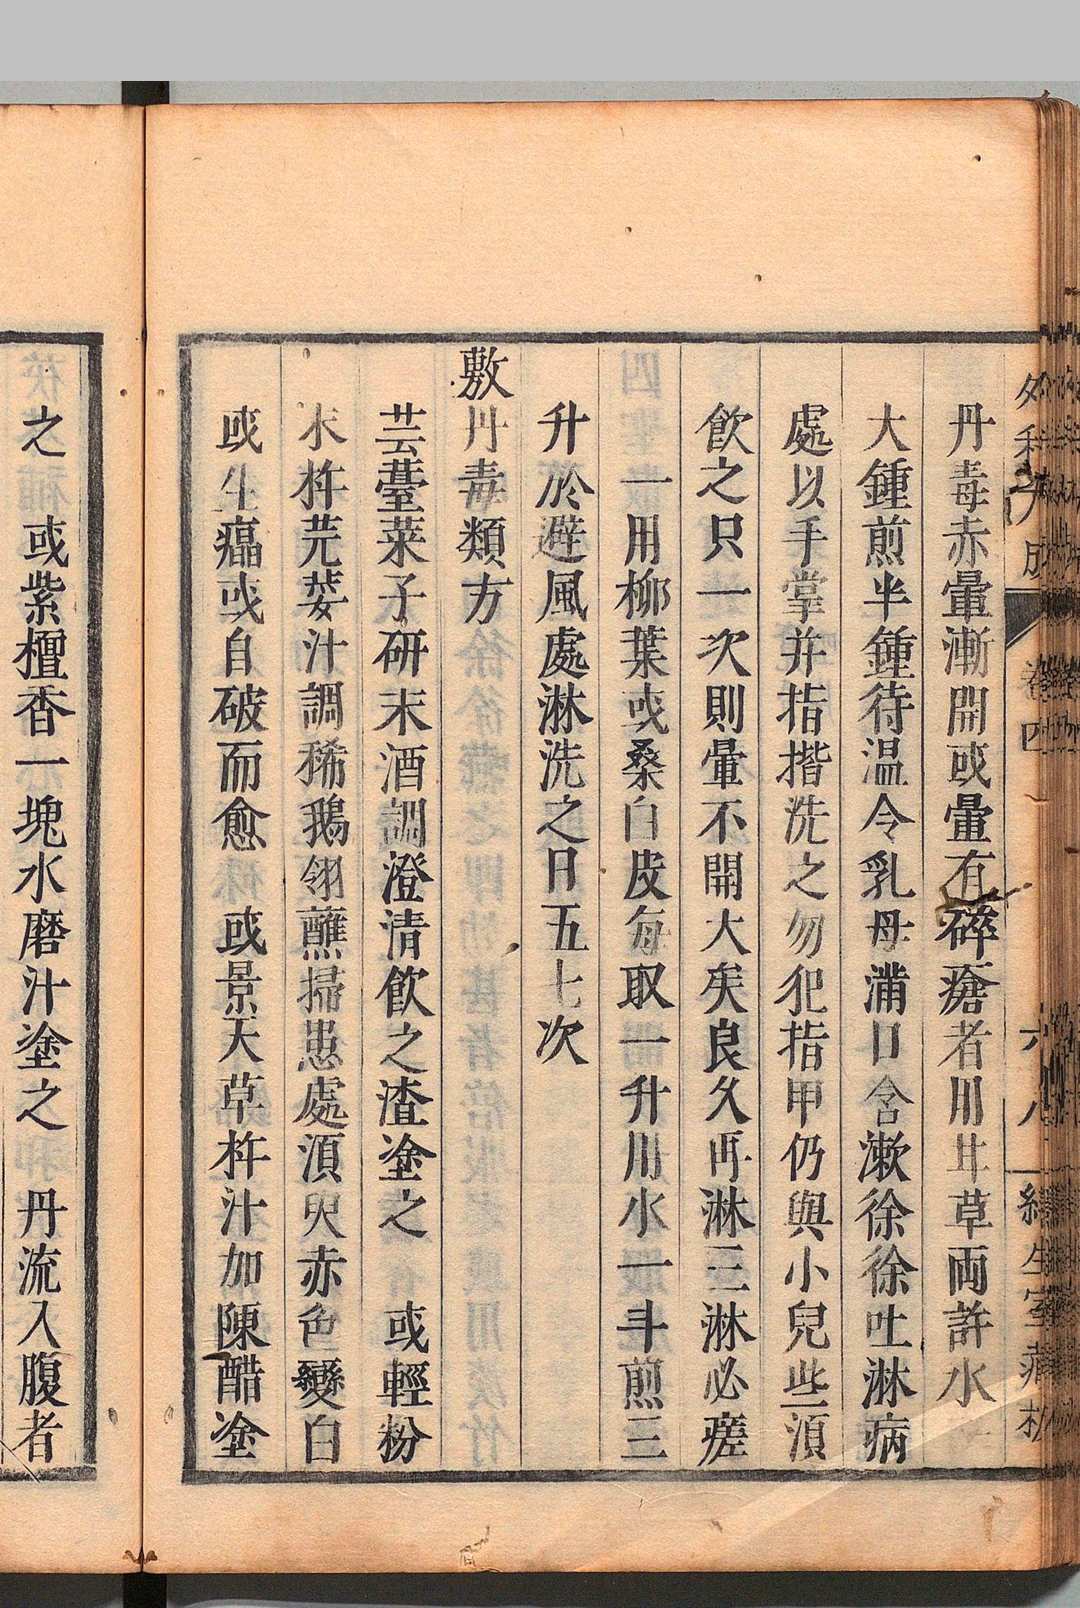 外科大成 卷四 六八 經生室藏板
丹毒赤暈漸開或暈有碎瘡者用甘草兩許水
大鍾煎半鍾待温令乳母滿口含漱徐徐吐淋病
處以手掌并指揩洗之勿犯指甲仍與小兒些須
飲之只一次則暈不開大矣良久再淋三淋必瘥
一用柳葉或桑白皮每取一升用水一斗煎三
升於避風處淋洗之日五七次
敷丹毒類方
芸薹菜子研末酒調澄清飲之渣塗之 或輕粉
末杵芫荽汁調稀鵝翎蘸掃患處須臾赤色變白
或生瘟或自破而愈 或景天草杵汁加陳醋塗
之 或紫檀香一塊水磨汁塗之 丹流入腹者